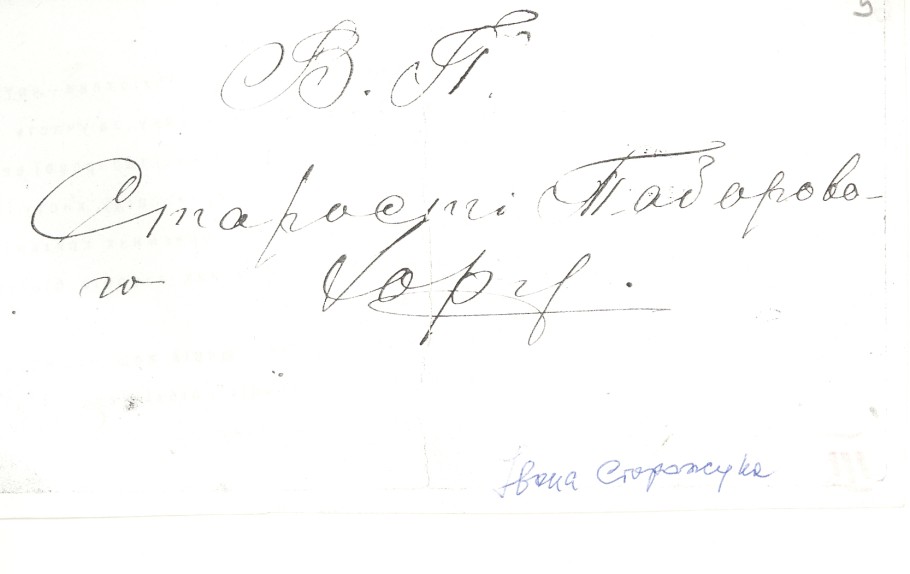 В. П.
Старості Таборово-
го Хору.
Івана Сторожука